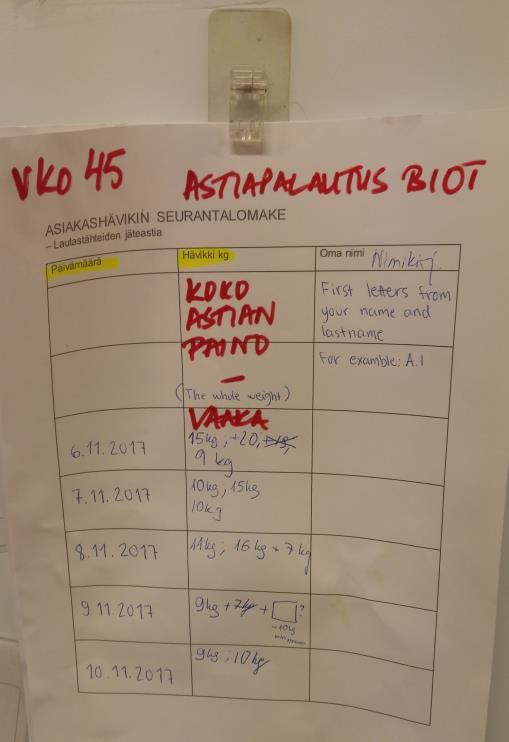 VKO 45 ASTIAPALAUTUS BIOT
ASIAKASHÄVIKIN SEURANTALOMAKE
– Lautastähteiden jäteastia
Päivämäärä Hävikki kg Oma nimi Nimikirj.
KOKO
ASTIAN
PAINO
–
(The whole weight)
VAAKA
First letters from
your name and
lastname
For examble: A.I
6.11.2017 15kg ; +20,
9 kg
7.11.2017 10kg ; 15kg
10kg
8.11.2017 11kg ; 16kg + 7kg
9.11.2017 9kg + 7kg + ?
~10kg
10.11.2017 9kg ; 10kg